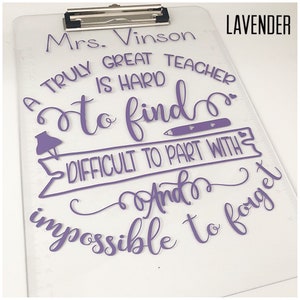 LAVENDER
Mrs. Vinson
A TRULY GREAT TEACHER
IS HARD
to find
DIFFICULT TO PART WITH
And
impossible to forget